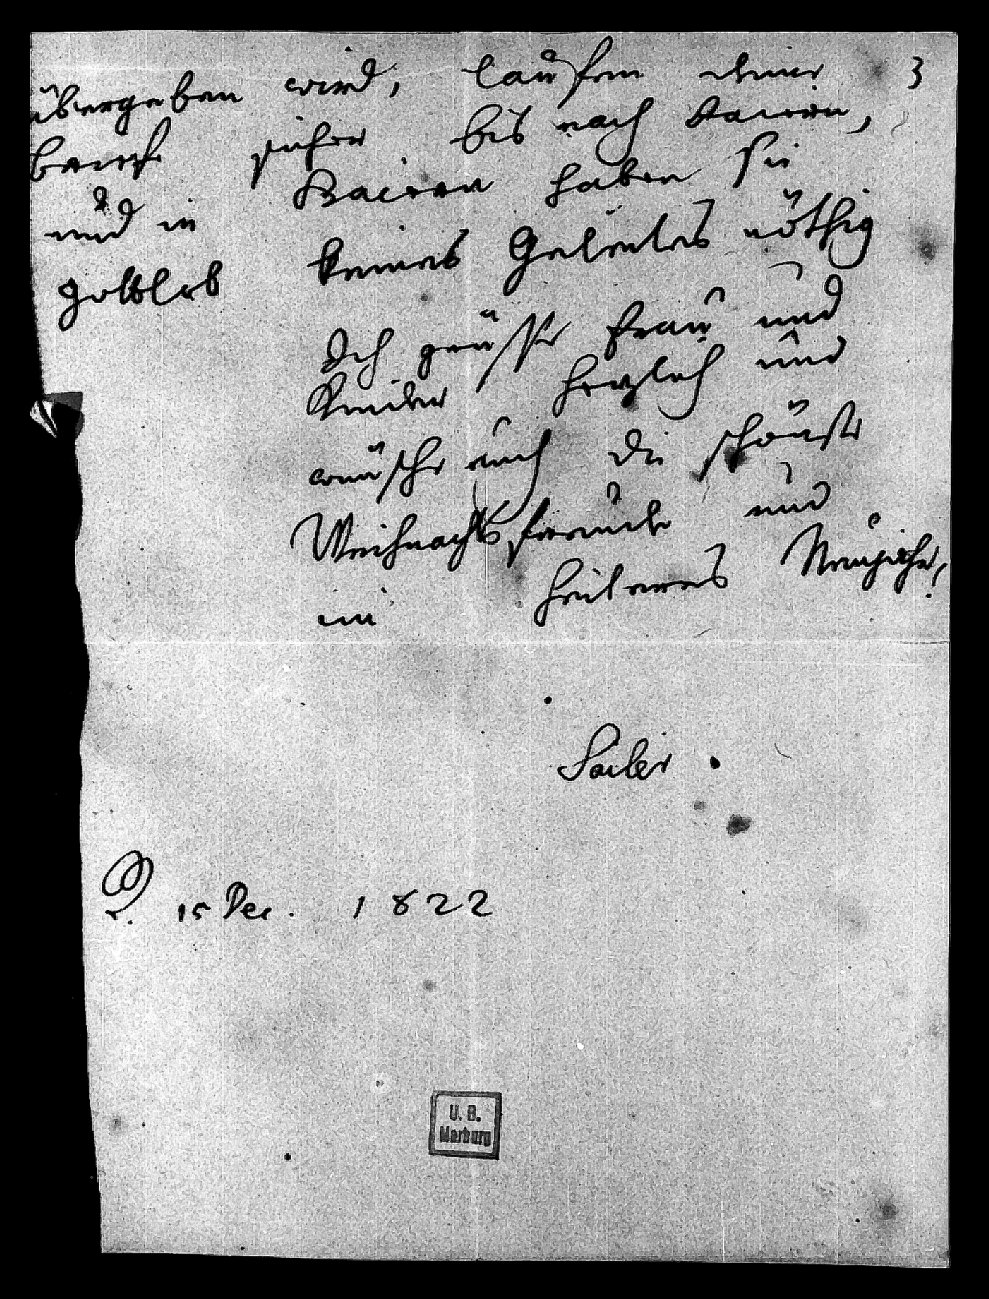 3
übergeben wird, laufen deine
sicher bis nach Baiern,
und in Baiern haben sie
gottlob keines Geleites nöthig
Ich grüsse Frau und
Kinder herzlich und
wünsche euch die schönste
Weihnachtsfreude und
ein heiteres Neujahr,
Sailer.
R. 15 Dec. 1822
U. B.
Marburg